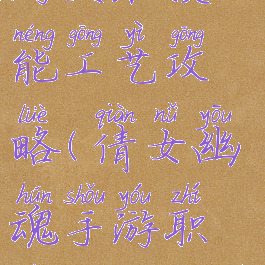 néng gōng yì gōng
能工艺攻
lüè qiàn nǚ yōu
略(倩女幽
hún shǒu yóu zhí
魂手游职